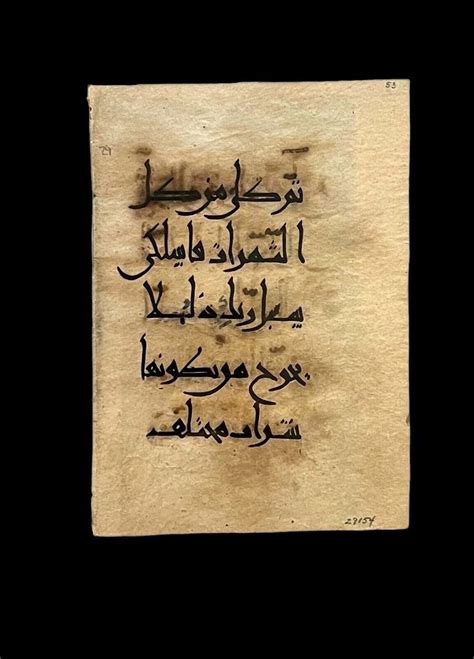 53
29
ثم كلي من كل
الثمرات فاسلكي
سبل ربك ذللا
يخرج من بطونها
شراب مختلف
29154